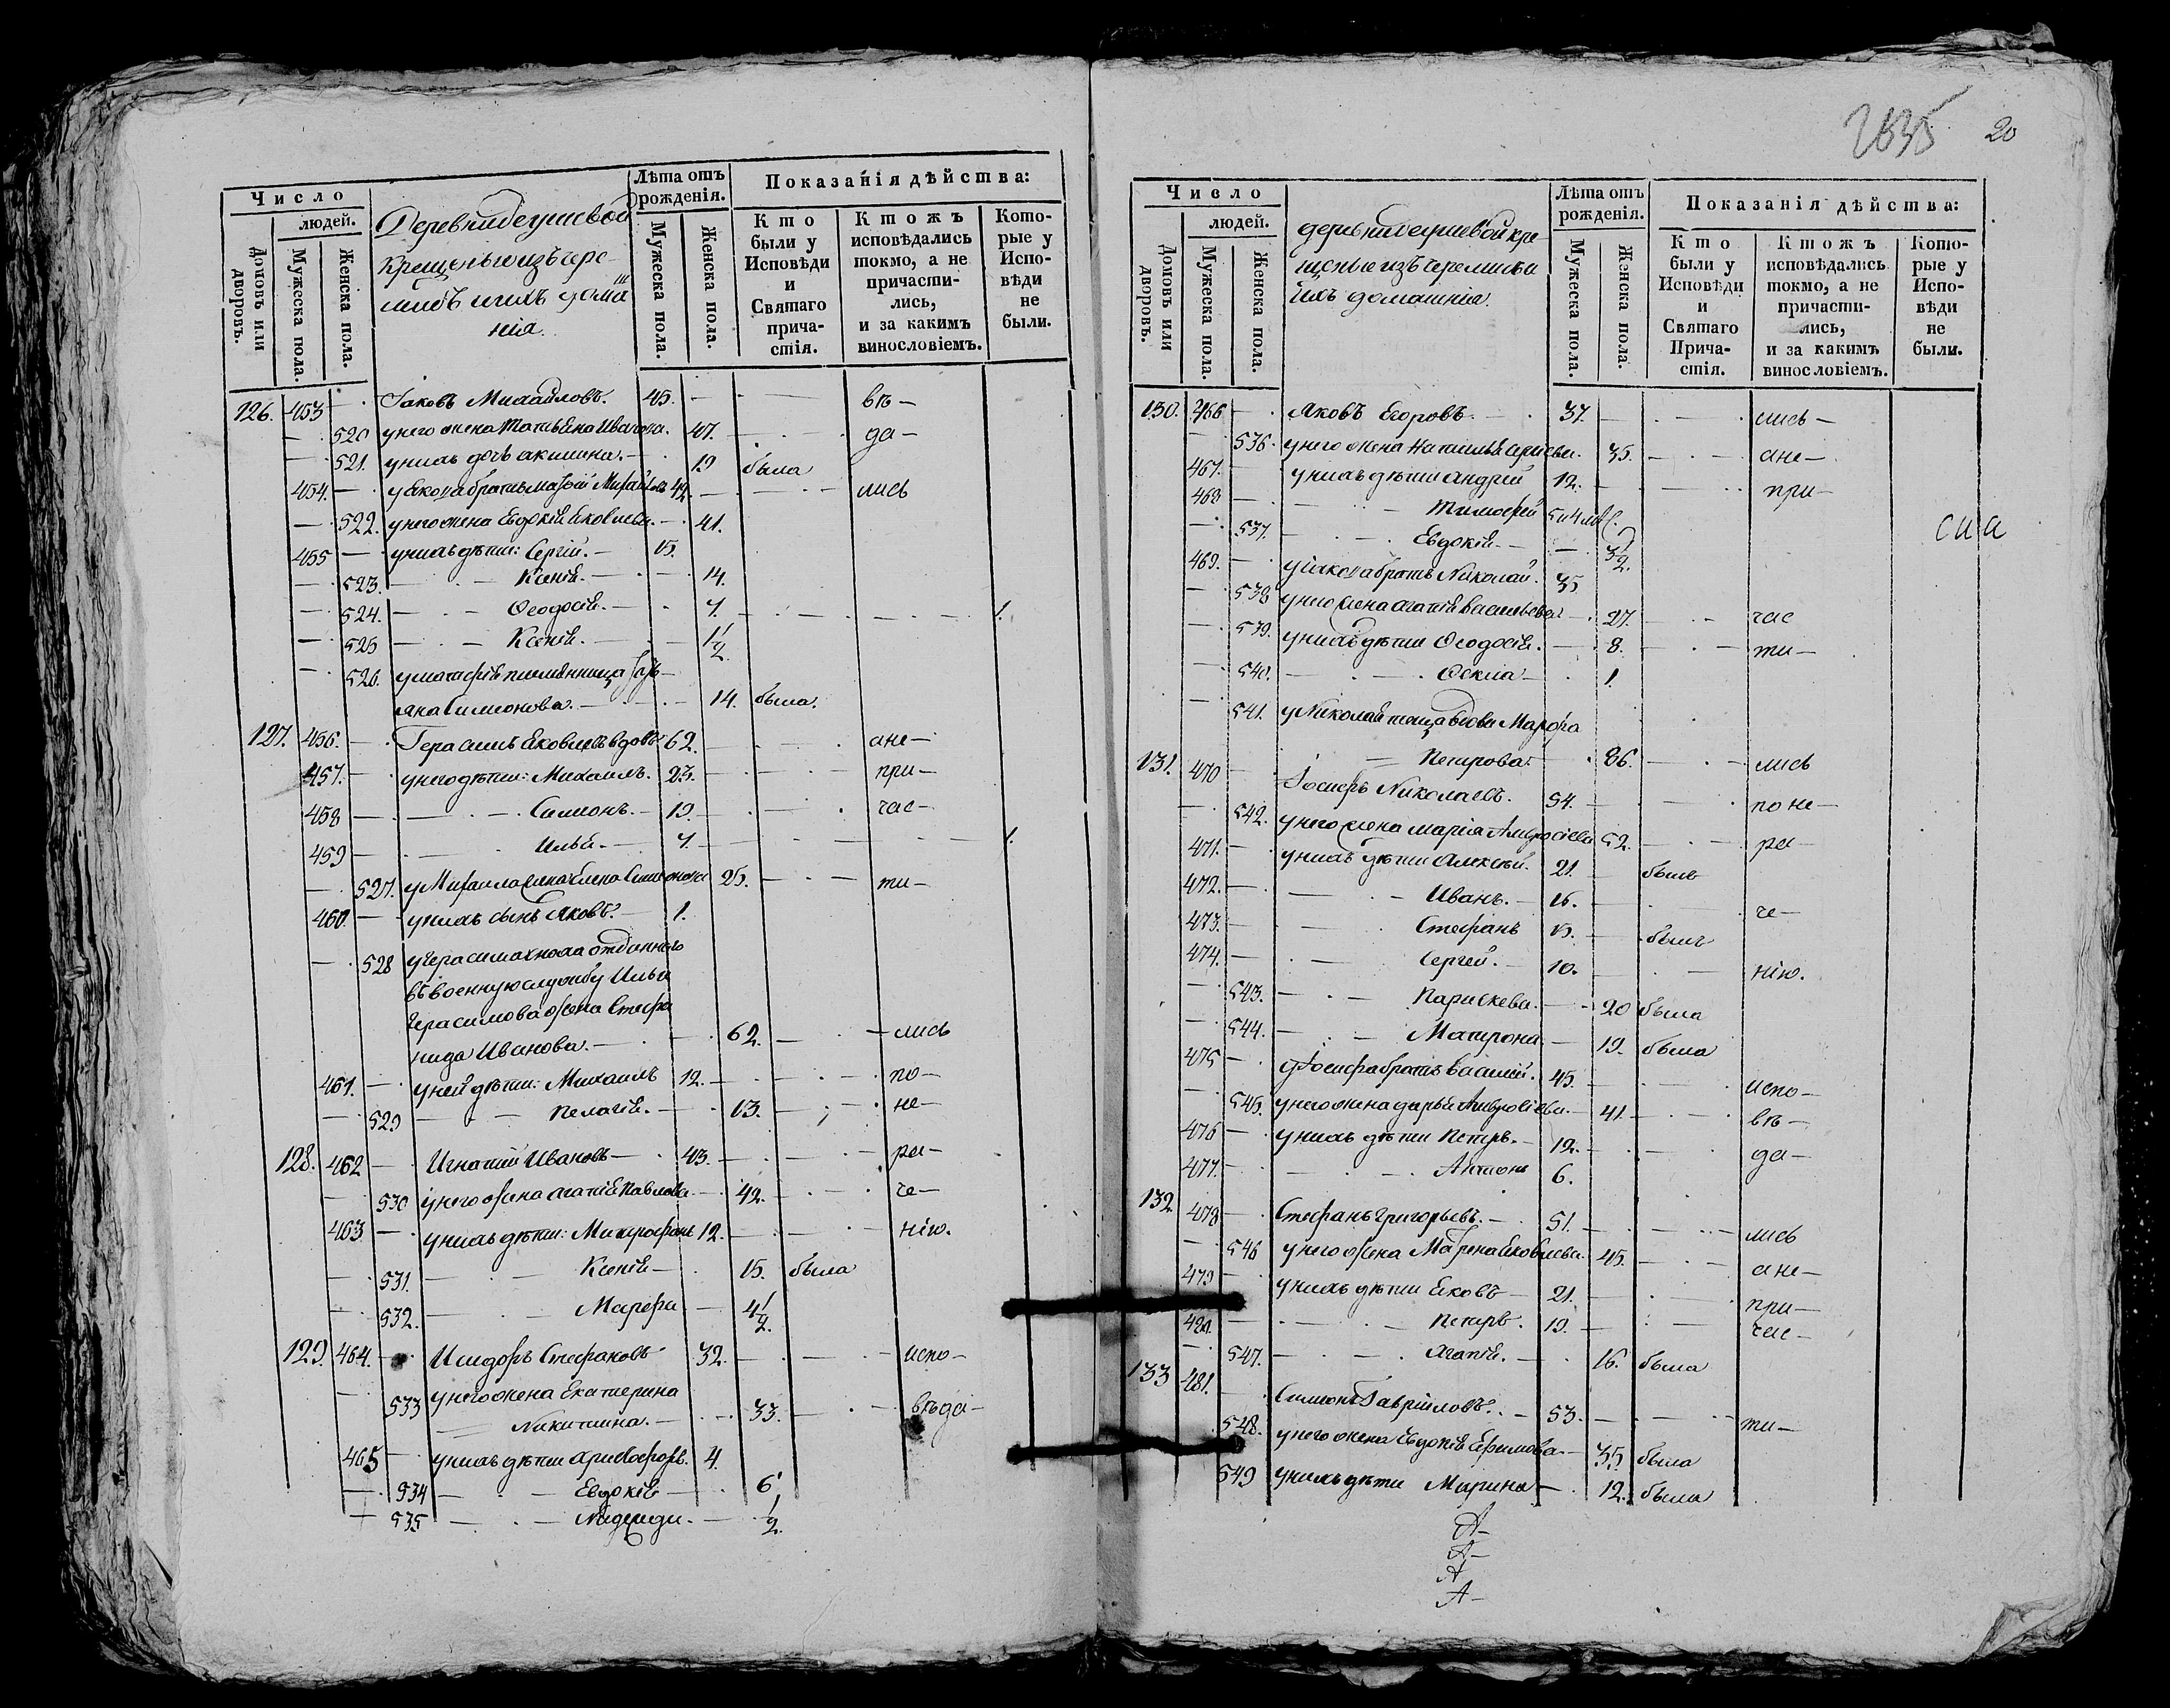 Число
людей.
Домовъ или дворовъ.
Мужеска пола.
Женска пола.
Лѣта отъ рожденія.
Мужеска пола.
Женска пола.
Показанія дѣйства:
Кто были у Исповѣди и Святаго причастія.
Ктожъ исповѣдались токмо, а не причастились, и за какимъ винословіемъ.
Которые у Исповѣди не были.
Крещеныя изъ чере-
мисъ ихъ дома
нія.
126. 453 — Іаковъ Михайловъ. 45. — вѣ —
— 520 у него жена Татьяна Иванова. 47. — да —
— 521. у нихъ дочь акилина. — 19 была
454. — у Якова братъ Михайловъ 44. — лись
— 522. у него жена Евдокія Яковлева. — 41.
455 — у нихъ дѣти: Сергій. — 15.
— 523. — Ксенія. — 14.
— 524. — Ѳеодосія. — 7. — 1.
— 525 — Ксенія. — 1 1/2
— 526. племянница
Симионова. — 14. была.
127. 456. — Герасимъ Яковлевъ вдовъ 62. — ане —
457. — у него дѣти: Михаилъ. 23. — при —
458 — Симионъ. — 19. — час —
459 — Илья. — 7. — 1.
— 527. у Михаила жена Елена Симионова 25. — ти —
460. — у нихъ сынъ Яковъ. — 1.
— 528 у Герасима отданнаго
въ военную службу Илья
Герасимова жена Стефа
нида Иванова. — 62. — лись
461. — у ней дѣти: Михаилъ 12. — по —
— 529 — Пелагія. — 13. — не —
128. 462 — Игнатій Ивановъ — 43. — ра —
— 530 у него жена агафія Павлова — 42. — че —
463 — у нихъ дѣти: Митрофанъ 12. — нію.
— 531. — Ксенія — 15. была
— 532. — Марфа — 4 1/2.
129. 464. — Исидоръ Стефановъ 32. — испо —
— 533 у него жена Екатерина
Никитина. — 33. — вѣда —
465 — у нихъ дѣти Христофоръ. 4.
— 534 — Евдокія — 6
— 535 — Надежда. — 1/2.
2635 20
Число
людей.
Домовъ или дворовъ.
Мужеска пола.
Женска пола.
крещеные изъ черемисъ и
ихъ домашніе.
Лѣта отъ рожденія.
Мужеска пола.
Женска пола.
Показанія дѣйства:
Кто были у Исповѣди и Святаго Причастія.
Ктожъ исповѣдались токмо, а не причастились, и за какимъ винословіемъ.
Которые у Исповѣди не были.
130. 466 — Яковъ Егоровъ. — 37. — лись —
— 536. у него жена Наталья — 35. — ане —
467. — у нихъ дѣти Андрей 12. — при —
468 — Тимофей
— 537. — Евдокія — 3 1/2.
469. — у Іакова братъ Николай. 35
— 538 у него жена агафія Васильева — 27. — час
— 539. у нихъ дѣти Ѳеодосія. — 8. — ти —
— 540. — Ѳекла — 1.
— 541. у Николая теща вдова Марфа
Петрова. — 86. — лись
131. 470 — Іосифъ Николаевъ. 54. — по не —
— 542. у него жена Марія Амвросіева 52. — ра —
471. — у нихъ дѣти Алексѣй. 21. — былъ
472. — Иванъ. — 16. — че —
473. — Стефанъ 15. — былъ
474. — Сергей. — 10. — нію.
— 543. — Параскева. — 20 была
— 544. — Матрона — 19. была
475 — у Іосифа братъ Василій. 45. — испо —
— 545. у него жена Дарья Амвросіева. — 41. — вѣ —
476 — у нихъ дѣти Петръ. — 12. — да —
477. — Антонъ 6.
132 478 — Стефанъ Григорьевъ. — 51. — лись
— 546 у него жена Яковлева. 45. — ане —
479 — у нихъ дѣти Яковъ — 21. — при —
480. — Петръ. 19. — час —
— 547. — Агафія. — 16. была
133 481. — Симионъ Гавриловъ. — 53. — ти —
548. у него жена Евдокія Ефимова. — 35 была
549 у нихъ дѣти Марина — 12. была